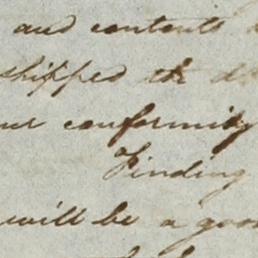 and contents
shipped the
conformity
Finding
will be a good